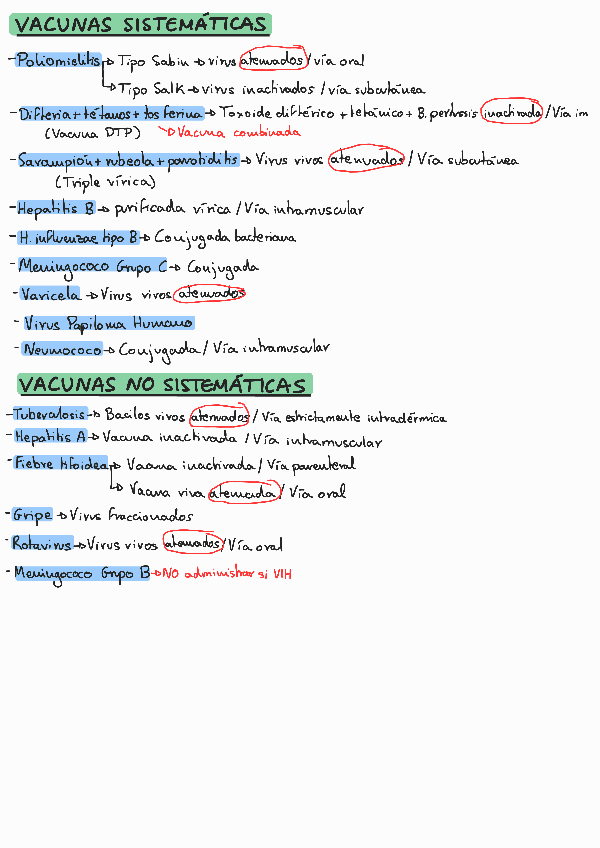 VACUNAS SISTEMÁTICAS
-Poliomielitis → Tipo Sabin → virus atenuados / vía oral
→ Tipo Salk → virus inactivados / vía subcutánea
-Difteria + tétanos + tos ferina → Toxoide diftérico + tetánico + B. pertussis inactivada / Vía im
(Vacuna DTP) → Vacuna combinada
-Sarampión + rubeola + parotiditis → Virus vivos atenuados / Vía subcutánea
(Triple vírica)
-Hepatitis B → purificada vírica / Vía intramuscular
-H. influenzae tipo B → Conjugada bacteriana
-Meningococo Grupo C → Conjugada
-Varicela → Virus vivos atenuados
-Virus Papiloma Humano
-Neumococo → Conjugada / Vía intramuscular
VACUNAS NO SISTEMÁTICAS
-Tuberculosis → Bacilos vivos atenuados / Vía estrictamente intradérmica
-Hepatitis A → Vacuna inactivada / Vía intramuscular
-Fiebre tifoidea → Vacuna inactivada / Vía parenteral
→ Vacuna viva atenuada / Vía oral
-Gripe → Virus fraccionados
-Rotavirus → Virus vivos atenuados / Vía oral
-Meningococo Grupo B → NO administrar si VIH